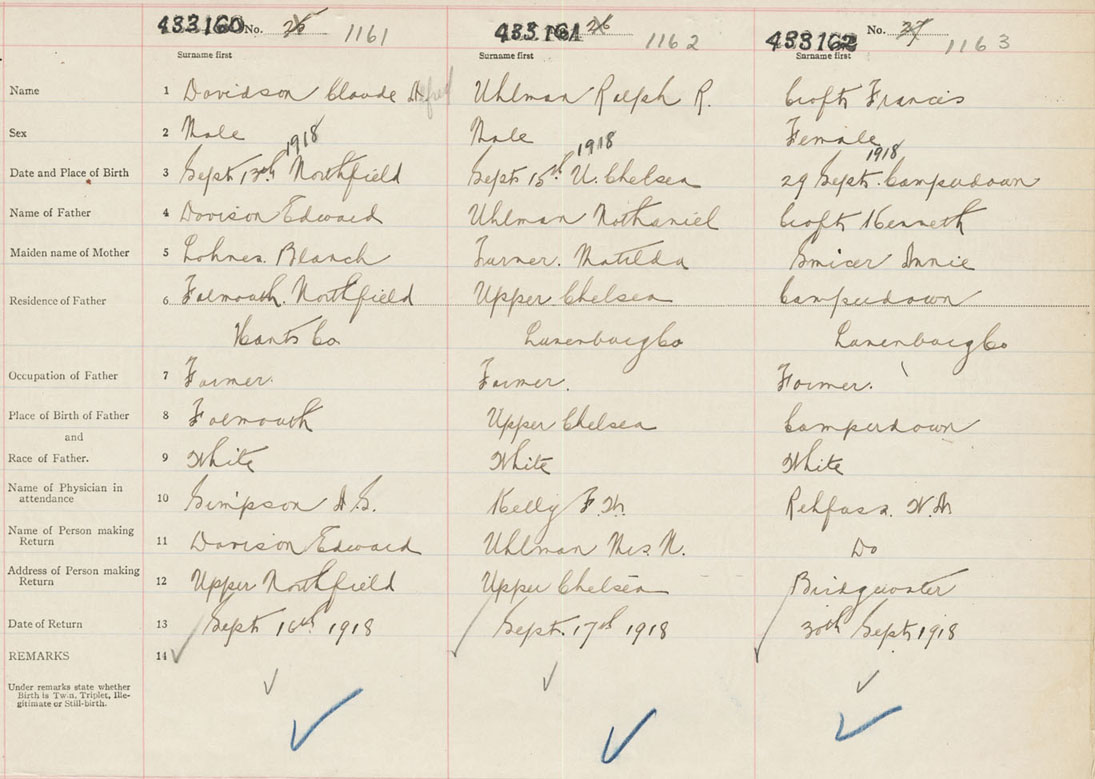 433160 No. 25 1161 433161 26 1162 433162 No. 27 1163
Surname first Surname first Surname first
Name 1 Davidson Claude Alfred Uhlman Ralph R. Croft Francis
Sex 2 Male Male Female
1918 1918 1918
Date and Place of Birth 3 Sept 13th Northfield Sept 15th U. Chelsea 29 Sept. Camperdown
Name of Father 4 Davison Edward Uhlman Nathaniel Croft Kenneth
Maiden name of Mother 5 Lohnes. Blanch Turner. Matilda Smicer Annie
Residence of Father 6 Falmouth. Northfield Upper Chelsea Camperdown
Hants Co Lunenburg Co Lunenburg Co
Occupation of Father 7 Farmer. Farmer. Farmer.
Place of Birth of Father 8 Falmouth Upper Chelsea Camperdown
and
Race of Father. 9 White White White
Name of Physician in
attendance 10 Simpson Kelly F. Rehfuss. W.N.
Name of Person making
Return 11 Davison Edward Uhlman Mrs. N. Do
Address of Person making
Return 12 Upper Northfield Upper Chelsea Bridgewater
Date of Return 13 Sept 16th 1918 Sept. 17th 1918 30th Sept 1918
REMARKS 14
Under remarks state whether
Birth is Twin, Triplet, Ille-
gitimate or Still-birth.